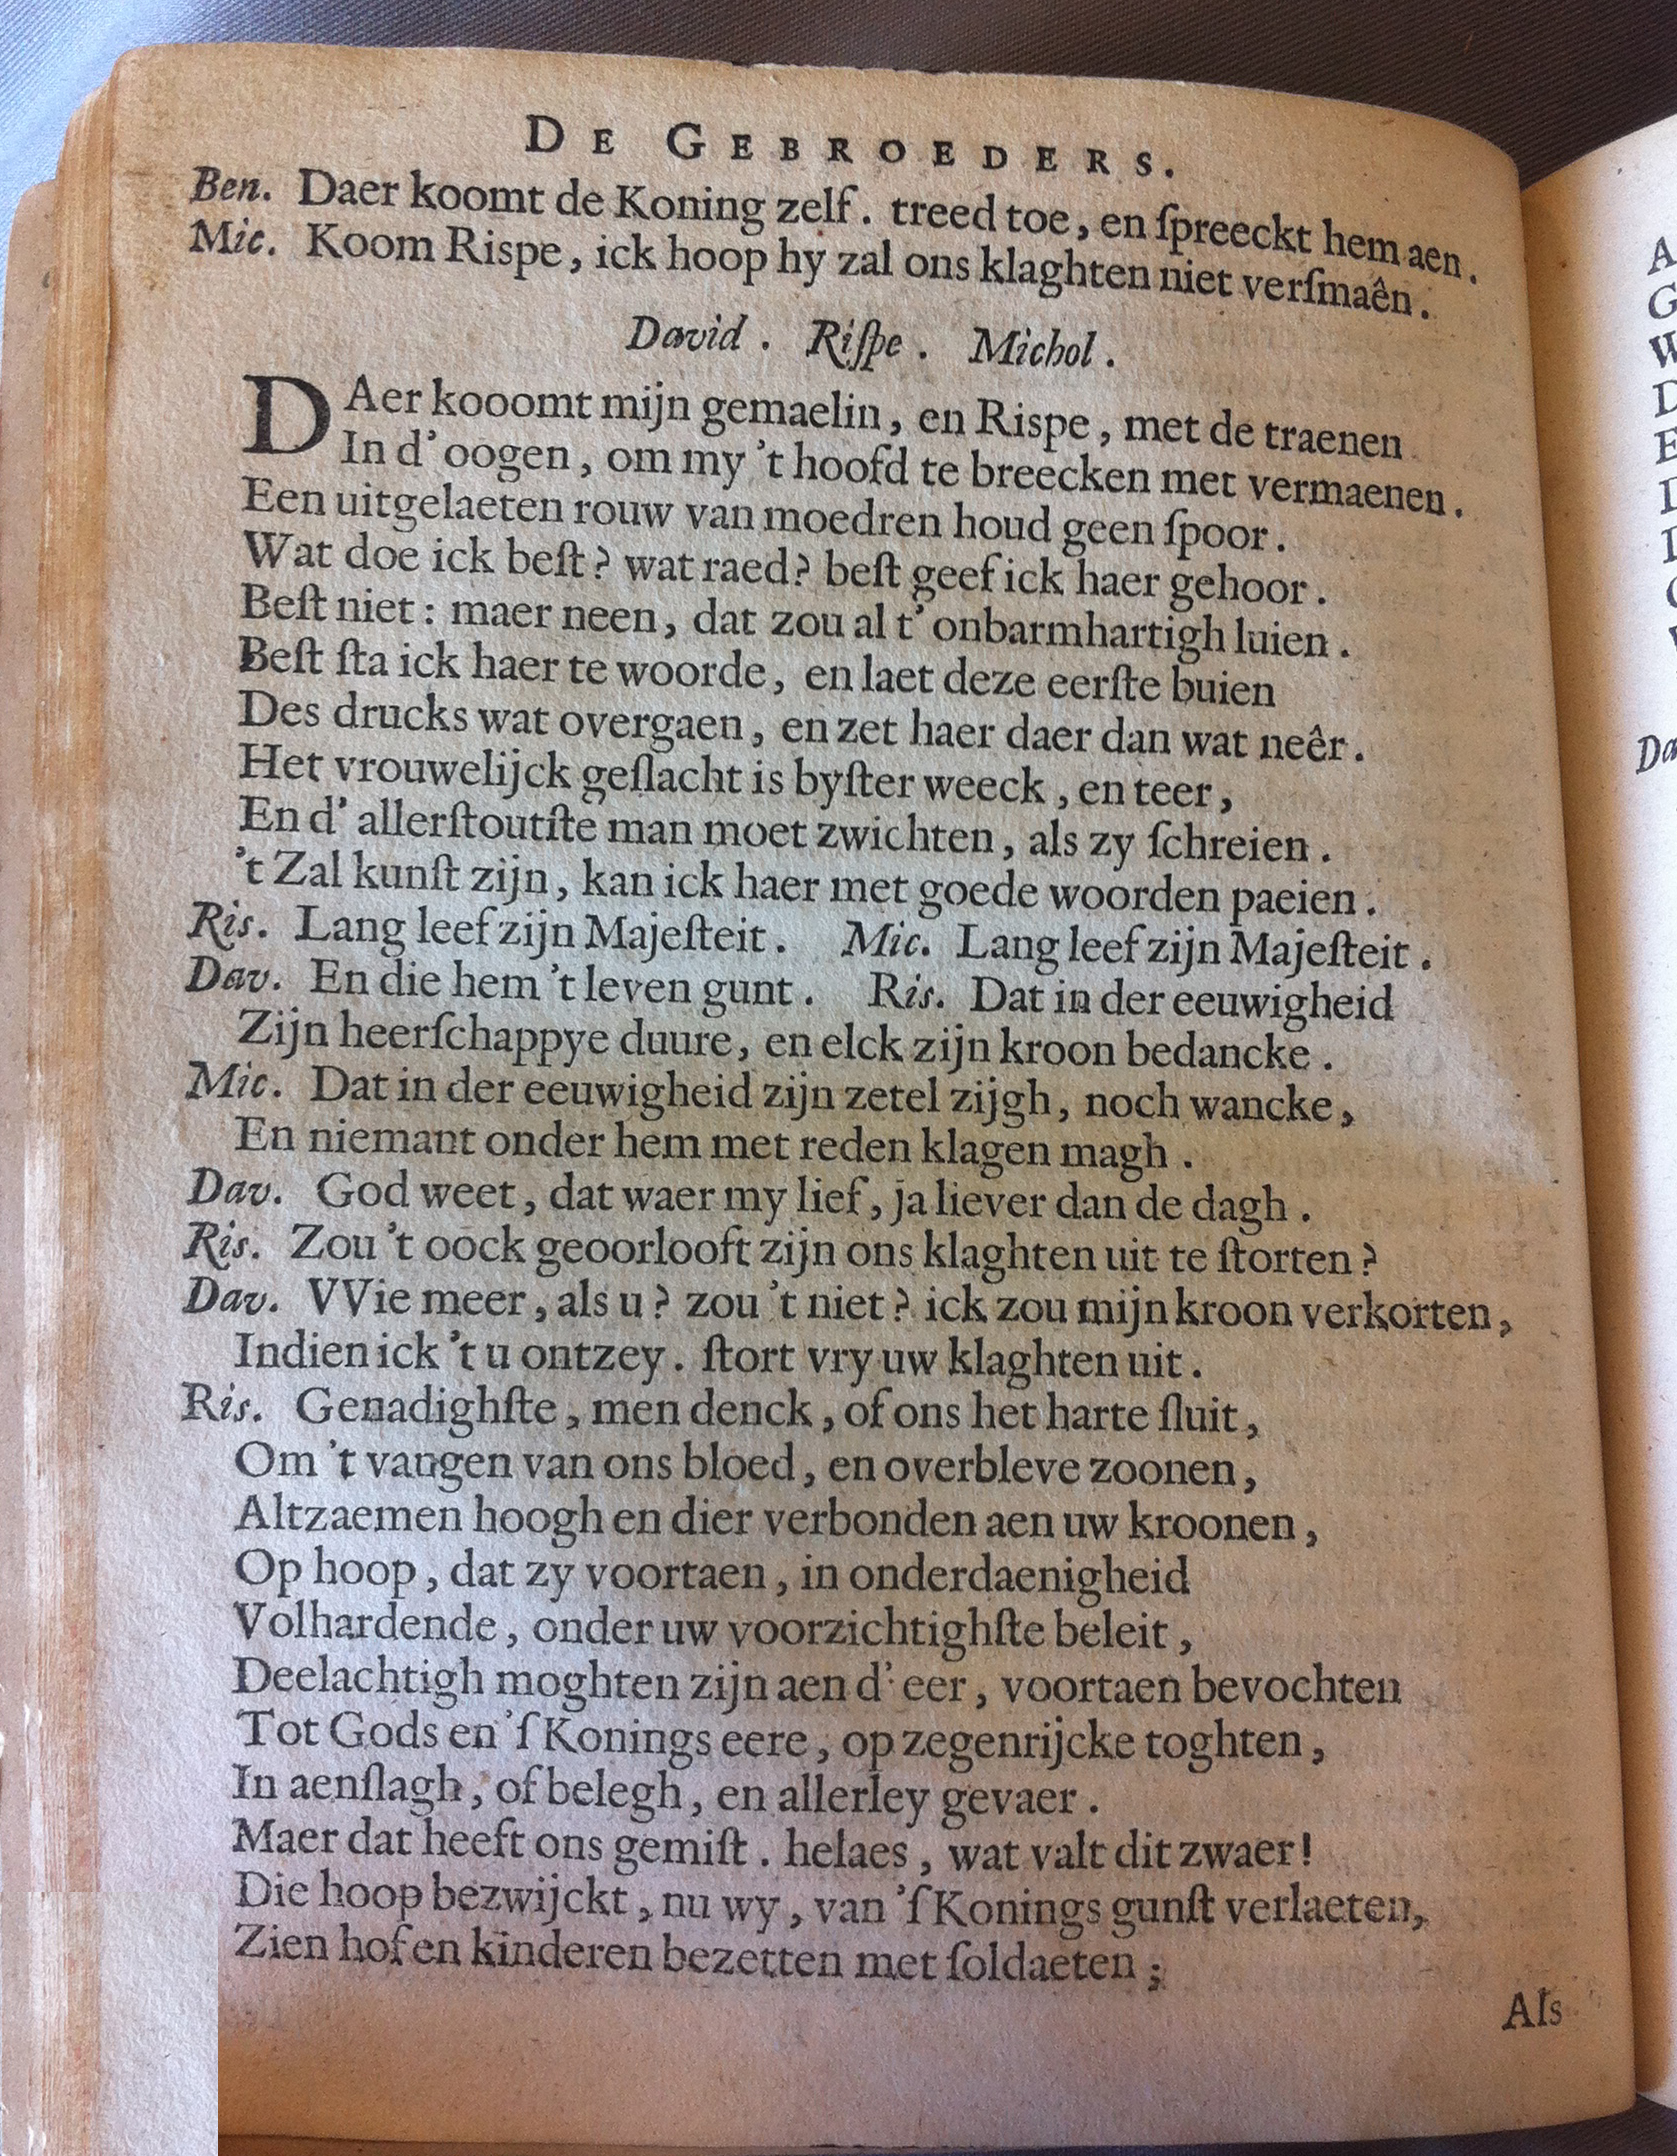 DE GEBROEDERS.
Ben. Daer koomt de Koning zelf. treed toe, en ſpreeckt hem aen.
Mic. Koom Rispe, ick hoop hy zal ons klaghten niet verſmaên.
David. Riſpe. Michol.
DAer kooomt mijn gemaelin, en Rispe, met de traenen
In d'oogen, om my 't hoofd te breecken met vermaenen.
Een uitgelaeten rouw van moedren houd geen ſpoor.
Wat doe ick beſt? wat raed? beſt geef ick haer gehoor.
Beſt niet: maer neen, dat zou al t'onbarmhartigh luien.
Beſt ſta ick haer te woorde, en laet deze eerſte buien
Des drucks wat overgaen, en zet haer daer dan wat neêr.
Het vrouwelijck geſlacht is byſter weeck, en teer,
En d'allerſtoutſte man moet zwichten, als zy ſchreien.
't Zal kunſt zijn, kan ick haer met goede woorden paeien.
Ris. Lang leef zijn Majeſteit. Mic. Lang leef zijn Majeſteit.
Dav. En die hem 't leven gunt. Ris. Dat in der eeuwigheid
Zijn heerſchappye duure, en elck zijn kroon bedancke.
Mic. Dat in der eeuwigheid zijn zetel zijgh, noch wancke,
En niemant onder hem met reden klagen magh.
Dav. God weet, dat waer my lief, ja liever dan de dagh.
Ris. Zou 't oock geoorlooft zijn ons klaghten uit te ſtorten?
Dav. VVie meer, als u? zou 't niet? ick zou mijn kroon verkorten,
Indien ick 't u ontzey. ſtort vry uw klaghten uit.
Ris. Genadighſte, men denck, of ons het harte ſluit,
Om 't vangen van ons bloed, en overbleve zoonen,
Altzaemen hoogh en dier verbonden aen uw kroonen,
Op hoop, dat zy voortaen, in onderdaenigheid
Volhardende, onder uw voorzichtighſte beleit,
Deelachtigh moghten zijn aen d'eer, voortaen bevochten
Tot Gods en 'ſ Konings eere, op zegenrijcke toghten,
In aenſlagh, of belegh, en allerley gevaer.
Maer dat heeft ons gemiſt. helaes, wat valt dit zwaer!
Die hoop bezwijckt, nu wy, van 'ſ Konings gunſt verlaeten,
Zien hof en kinderen bezetten met ſoldaeten;
Als